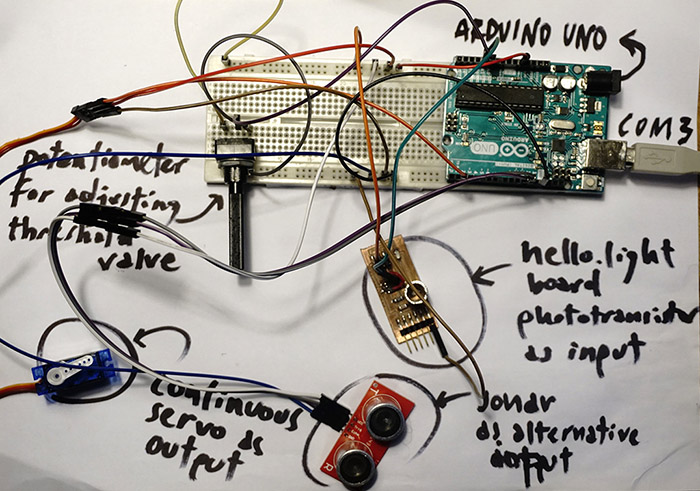 ARDUINO UNO
COM3
UNO
ARDUINO
potentiometer
for adjusting
threshold
value
hello.light
board
phototransistor
as input
continuous
servo as
output
sonar
as alternative
output
T
R